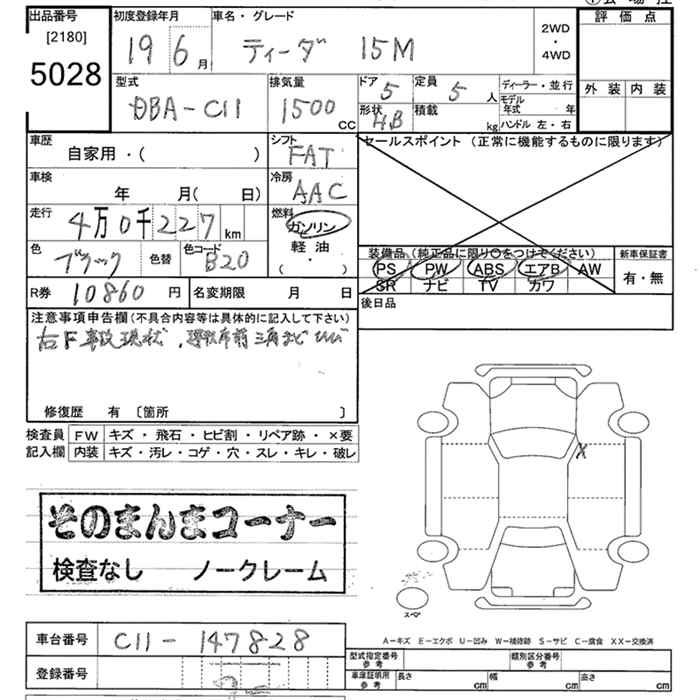 出品番号
[2180]
5028
初度登録年月
19 6月
車名・グレード
ティーダ 15M
2WD
・
4WD
評価点
外装 内装
型式
DBA-C11
排気量
1500
CC
ドア
5
形状
HB
定員
5 人
積載
kg
ディーラー・並行
モデル
年式 年
ハンドル 左・右
車歴
自家用・( )
シフト
FAT
セールスポイント (正常に機能するものに限ります)
車検
年 月( 日)
冷房
AAC
走行
4万0千227
km
燃料
ガソリン
軽油
( ・ )
色
ブラック
色替
色コード
B20
装備品 (純正品に限り○をつけてください)
PS PW ABS エアB AW
SR ナビ TV カワ
新車保証書
有・無
R券 10860 円
名変期限 月 日
後日品
注意事項申告欄 (不具合内容等は具体的に記入して下さい)
右F事故現状、運転席前三角まど ひび
修復歴 有 〔箇所 〕
検査員 FW キズ・飛石・ヒビ割・リペア跡・×要
記入欄 内装 キズ・汚レ・コゲ・穴・スレ・キレ・破レ
X
そのまんまコーナー
検査なし ノークレーム
スペア
A-キズ E-エクボ U-凹み W-補修跡 S-サビ C-腐食 XX-交換済
車台番号 C11-147828
登録番号
型式指定番号
参考
類別区分番号
参考
車庫証明用
参考
長さ cm 幅 cm 高さ cm